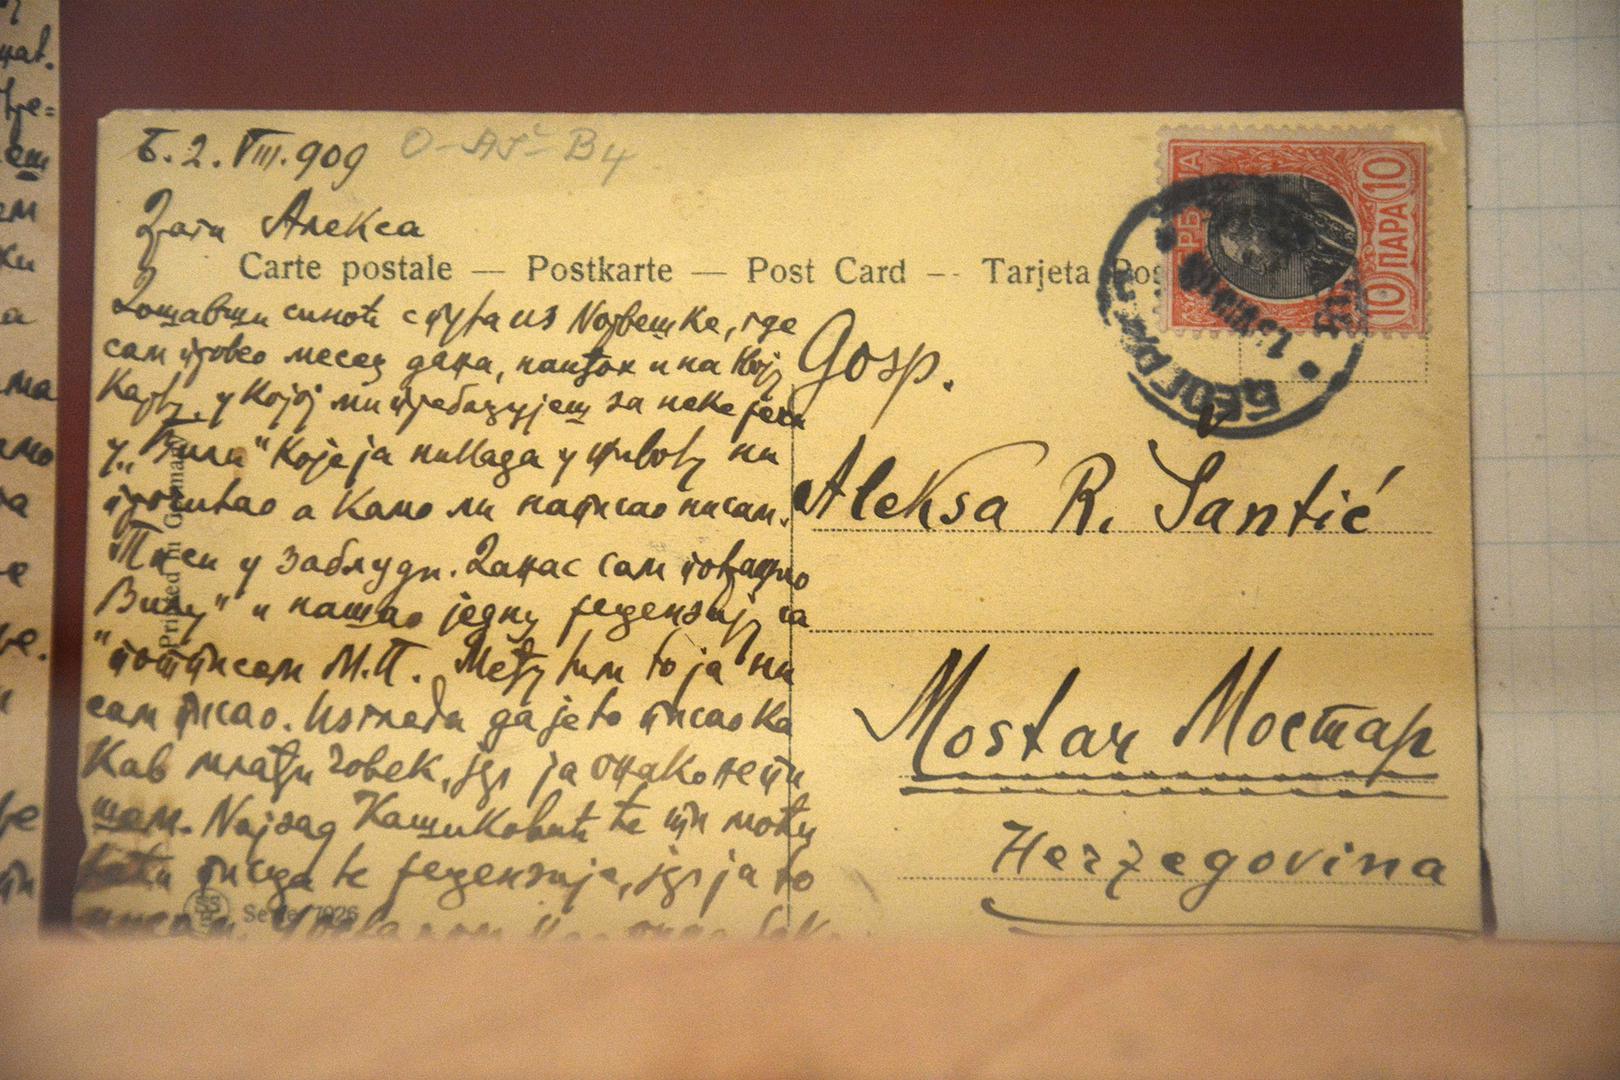 Б. 2. VIII. 909
O-AŠ-B4
Драги Алекса
Carte postale — Postkarte — Post Card — Tarjeta Pos
Дошавши синоћ с пута из Норвешке, где
сам провео месец дана, нађох и на твоју
карту, у којој ми пребацујеш за неке речи
у „Вили" које ја никада у животу ни
прочитао а камо ли написао нисам.
Ти си у заблуди. Данас сам
Вилу" и нашао једну рецензију са
потписом М.П. Међутим то ја ни
сам писао. Изгледа да је то писао не
кав млађи човек, јер ја онако не пи
шем. Најзад Кашиковић ће ти моћи
рећи писца те рецензије, јер ја то
Printed in Germany
Serie 7926
Gosp.
Aleksa R. Šantić
Mostar Мостар
Herzegovina
10 ПАРА 10
БЕОГРАД